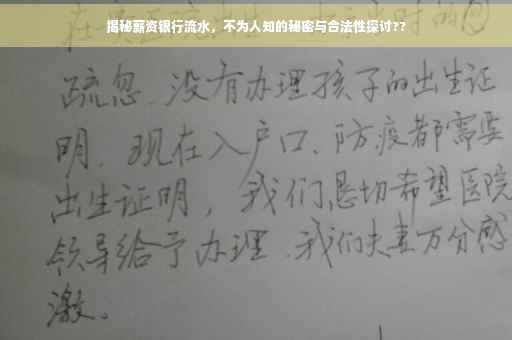 揭秘薪资银行流水，不为人知的秘密与合法性探讨??
疏忽、没有办理孩子的出生证
明、现在入户口、防疫都需要
出生证明，我们恳切希望医院
领导给予办理、我们夫妻万分感
激。